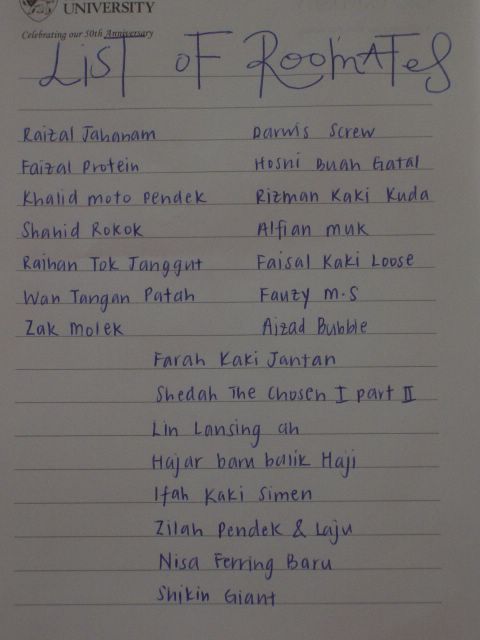 UNIVERSITY
Celebrating our 50th Anniversary
LiST OF ROOMATES
Raizal Jahanam Darwis Screw
Faizal Protein Hosni Buah Gatal
Khalid moto pendek Rizman Kaki Kuda
Shahid Rokok Alfian muk
Raihan Tok Janggut Faisal Kaki Loose
Wan Tangan Patah Fauzy M.S
Zak Molek Aizad Bubble
Farah Kaki Jantan
Shedah The Chosen I part II
Lin Lansing ah
Hajar baru balik Haji
Ifah Kaki Simen
Zilah Pendek & Laju
Nisa Ferring Baru
Shikin Giant